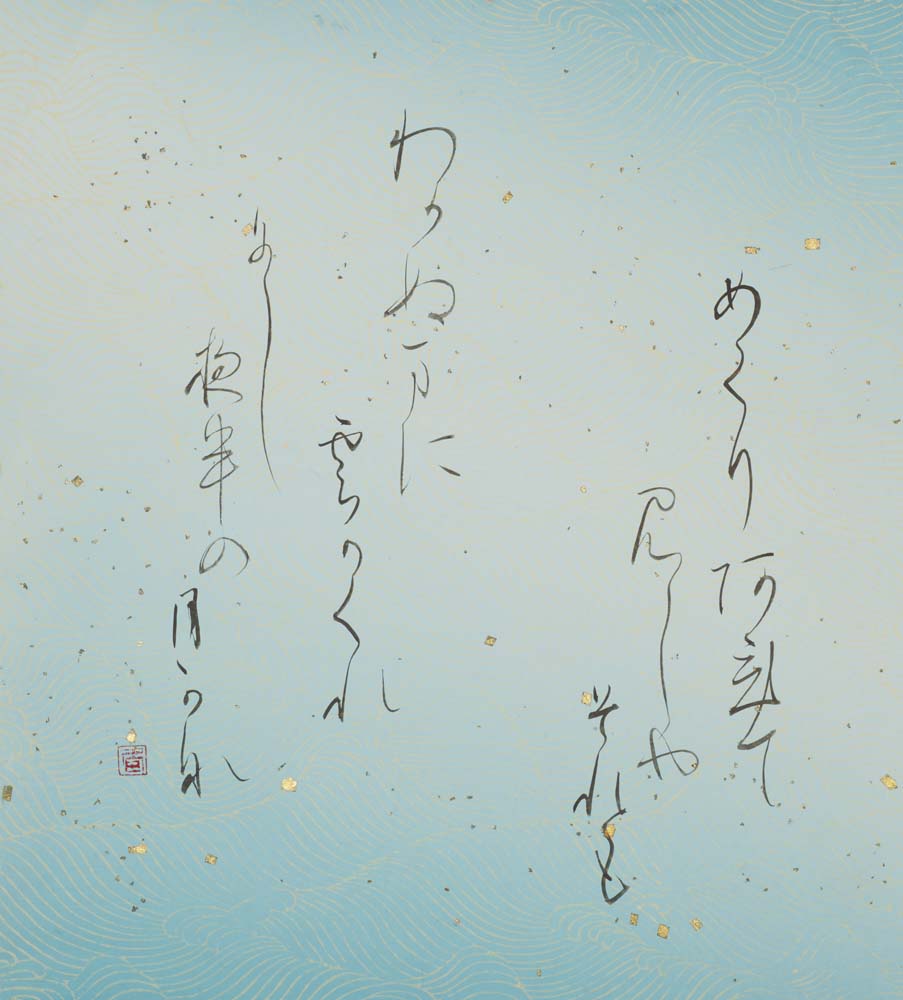 めくり阿飛て
見しや
それとも
わかぬまに
雲かくれ
にし
夜半の月かな